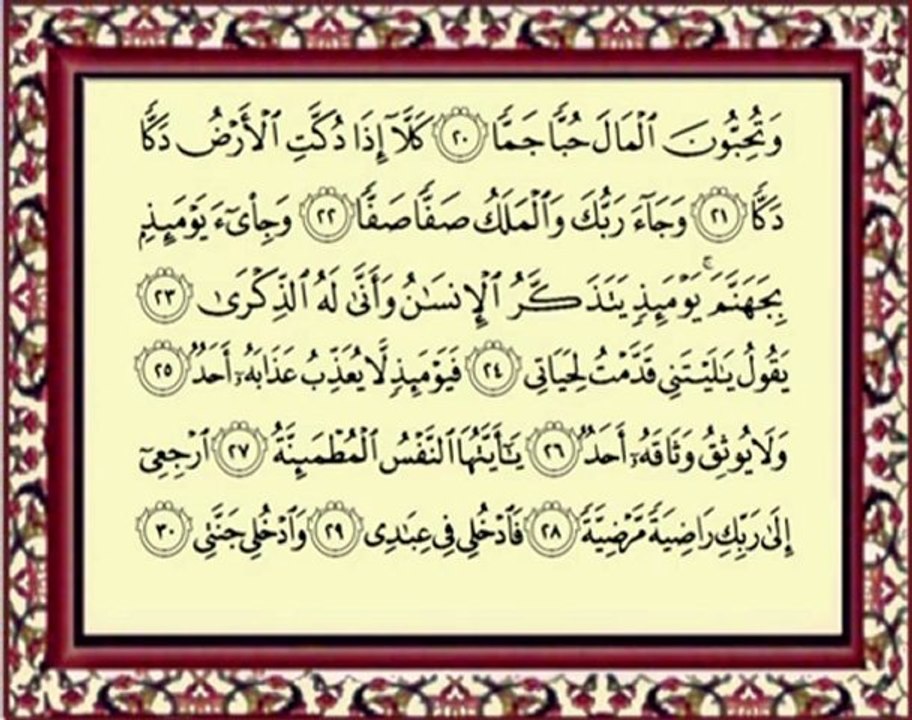 وَتُحِبُّونَ ٱلْمَالَ حُبًّا جَمًّا ٢٠ كَلَّآ إِذَا دُكَّتِ ٱلْأَرْضُ دَكًّا
دَكًّا ٢١ وَجَآءَ رَبُّكَ وَٱلْمَلَكُ صَفًّا صَفًّا ٢٢ وَجِا۟ىٓءَ يَوْمَئِذٍۭ
بِجَهَنَّمَ ۚ يَوْمَئِذٍ يَتَذَكَّرُ ٱلْإِنسَـٰنُ وَأَنَّىٰ لَهُ ٱلذِّكْرَىٰ ٢٣
يَقُولُ يَـٰلَيْتَنِى قَدَّمْتُ لِحَيَاتِى ٢٤ فَيَوْمَئِذٍ لَّا يُعَذِّبُ عَذَابَهُۥٓ أَحَدٌ ٢٥
وَلَا يُوثِقُ وَثَاقَهُۥٓ أَحَدٌ ٢٦ يَـٰٓأَيَّتُهَا ٱلنَّفْسُ ٱلْمُطْمَئِنَّةُ ٢٧ ٱرْجِعِىٓ
إِلَىٰ رَبِّكِ رَاضِيَةً مَّرْضِيَّةً ٢٨ فَٱدْخُلِى فِى عِبَـٰدِى ٢٩ وَٱدْخُلِى جَنَّتِى ٣٠